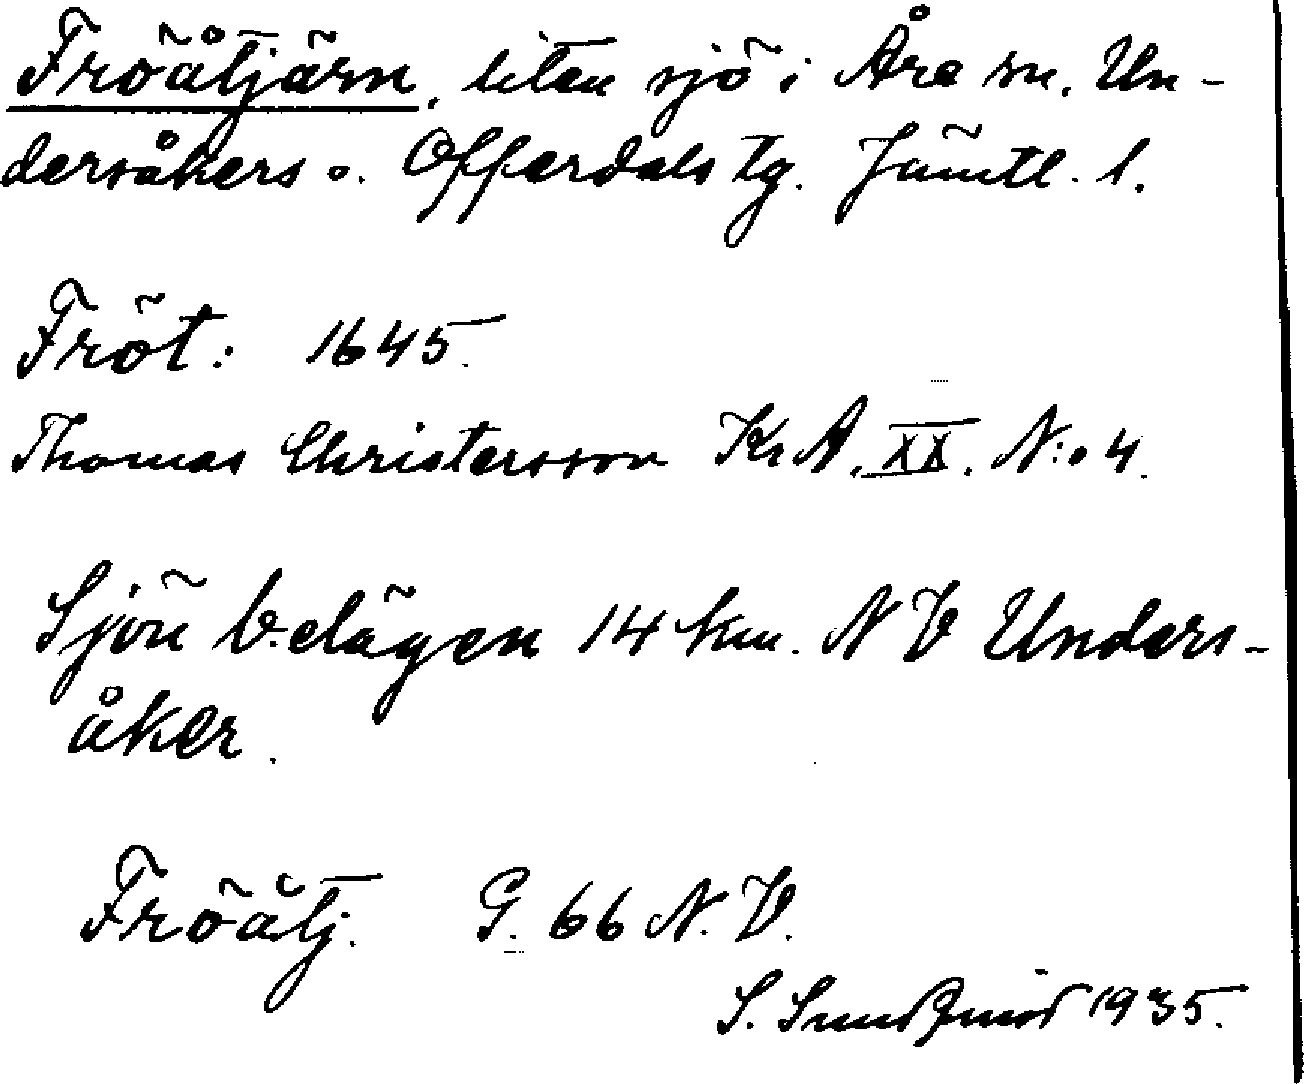 Fröåtjärn, liten sjö i Åre sn. Un-
dersåkers o. Offerdals tg. Jämtl. l.
Fröt: 1645.
Thomas Christersson KrA. XX. N:o 4.
Sjön belägen 14 km. NV Unders-
åker.
Fröåtj. G. 66 N.V.
S. 1935.